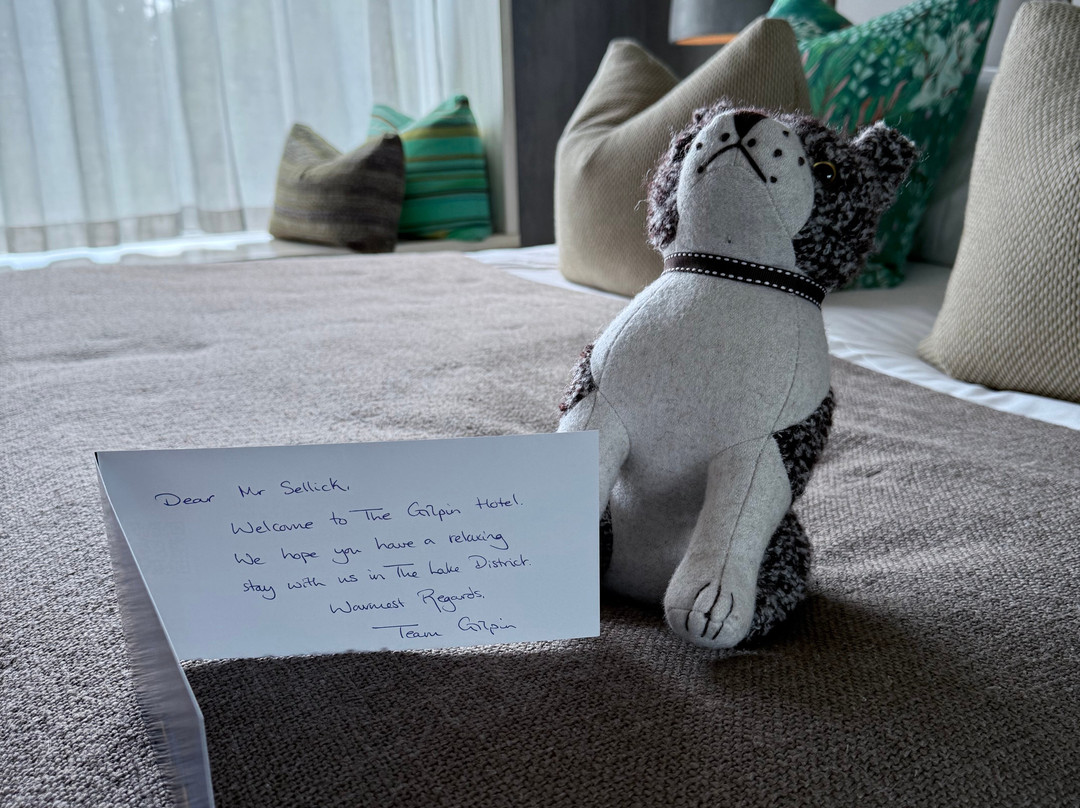 Dear Mr Sellick,
Welcome to The Gilpin Hotel.
We hope you have a relaxing
stay with us in The Lake District.
Warmest Regards,
Team Gilpin